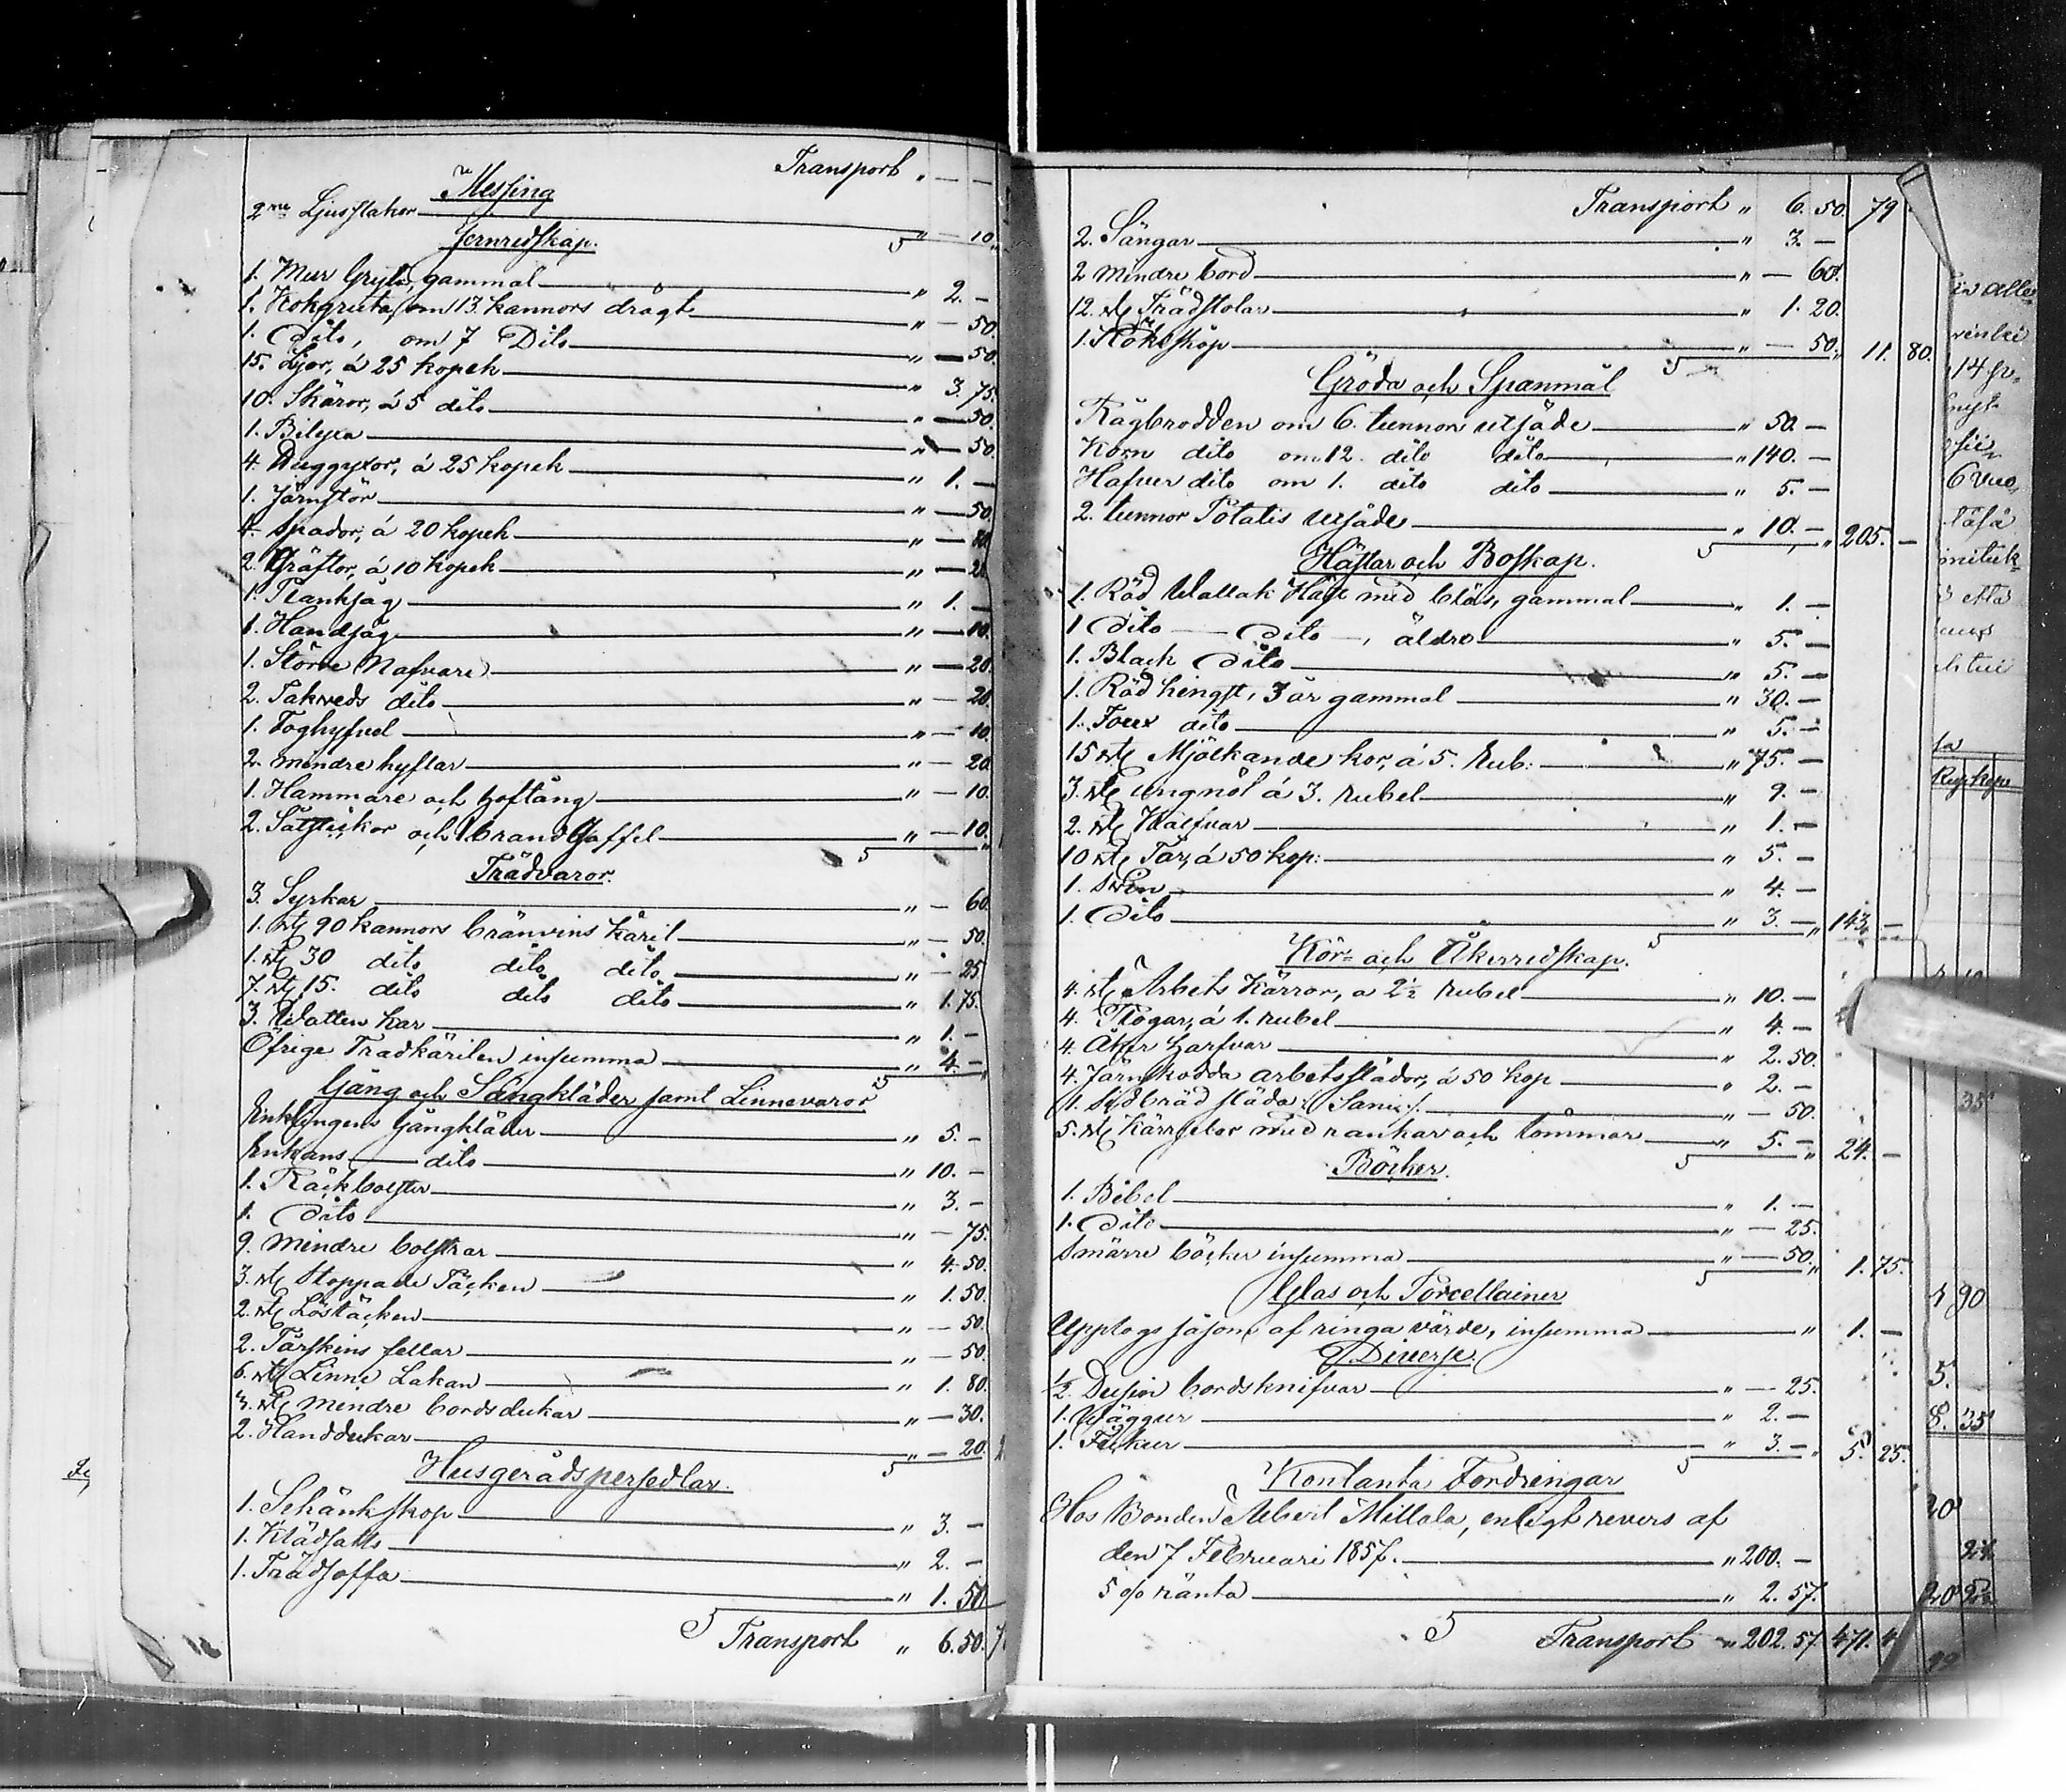 Transport " — —
Messing
2ne Ljusstakar " — 10.
Jernredskap.
1. Mur Gryta, gammal " 2. —
1. Kokgruta, om 13. kannors drägt " — 50.
1. Dito, om 7 Dito " — 50.
15. Ljor, á 25 kopek " 3. 75.
10. Skäror, á 5 dito " — 50.
1. Bilyxa " — 50.
4. Huggyxor, á 25 kopek " 1. —
1. Järnstör " — 50.
4. Spador, á 20 kopek " — 80.
2. Gräftor, á 10 kopek " — 20.
1. Planksåg " 1. —
1. Handsåg " — 10.
1. Större Nafvare " — 20.
2. Takveds dito " — 20.
1. Foghyfvel " — 10.
2. mindre hyflar " — 20.
1. Hammare och hoftång " — 10.
2. och 1 brand Gaffel " — 10.
Trädvaror.
3. Byrkar " — 60.
1. st. 90 kannors bränvins käril " — 50.
1. st. 30 dito dito dito " — 25.
7. st. 15. dito dito dito " 1. 75.
3. Watten kar " 1. —
Öfrige Trädkärilen insumma " 4. —
Gång och Sängkläder samt Linnevaror
Enklingens Gångkläder " 5. —
Enkans dito " 10. —
1. Räckbolster " 3. —
1. Dito " — 75.
9. mindre bolstrar " 4. 50.
3. st. stoppade Täcken " 1. 50.
2. st. Löstäcken " — 50.
2. Fårskins fellar " — 50.
6. st. Linne Lakan " 1. 80.
3. st. mindre bordsdukar " — 30.
2. Handdukar " — 20.
Husgerådspersedlar.
1. Schänkskåp " 3. —
1. Klädsatts " 2. —
1. Trädsoffa " 1. 50
Transport " 6. 50.
Transport " 6. 50. 79
2. Sängar " 3. —
2 mindre bord " — 60.
12. st. Trädstolar " 1. 20.
1. Kökskåp " — 50. " 11. 80.
Gröda och Spanmål
Rågbrodden om 6. tunnors utsäde " 50. —
Korn dito om 12. dito dito " 140. —
Hafver dito om 1. dito dito " 5. —
2. tunnor Potatis utsäde " 10. — " 205. —
Hästar och Boskap.
1. Röd Wallak Häst med bläs, gammal " 1. —
1 Dito — Dito —, äldre " 5. —
1. Black Dito " 5. —
1. Röd hingst, 3 år gammal " 30. —
1. dito " 5. —
15 st. Mjölkande kor, á 5. Rub: " 75. —
3. st. ungnöt á 3. rubel " 9. —
2. st. Kalfvar " 1. —
10 st. Får, á 50 kop: " 5. —
1. Svin " 4. —
1. Dito " 3. — " 143. —
Kör- och Åkerredskap.
4. st. Arbets Kärror, a 2½ rubel " 10. —
4. Plogar, á 1. rubel " 4. —
4. Åker harfvar " 2. 50.
4. Järnskodda arbetsslädor, á 50 kop " 2. —
1. släda /: Sanii :/ " — 50.
5. st. Kärrselar med rankar och tömmar " 5. — " 24. —
Böcker.
1. Bibel " 1. —
1. Dito " — 25.
Smärre böcker insumma " — 50. " 1. 75.
Glas och Porcellainer
Upptogs såsom af ringa värde, insumma " 1. —
Diverse.
½ Dusin bordsknifvar " — 25.
1. Wäggur " 2. —
1. Fickur " 3. — " 5. 25.
Kontanta Fordringar
Hos Bonden Albert Millola, enligt revers af
den 7 Februari 1857. " 200. —
5 o/o ränta " 2. 57.
Transport " 202. 57. 471.